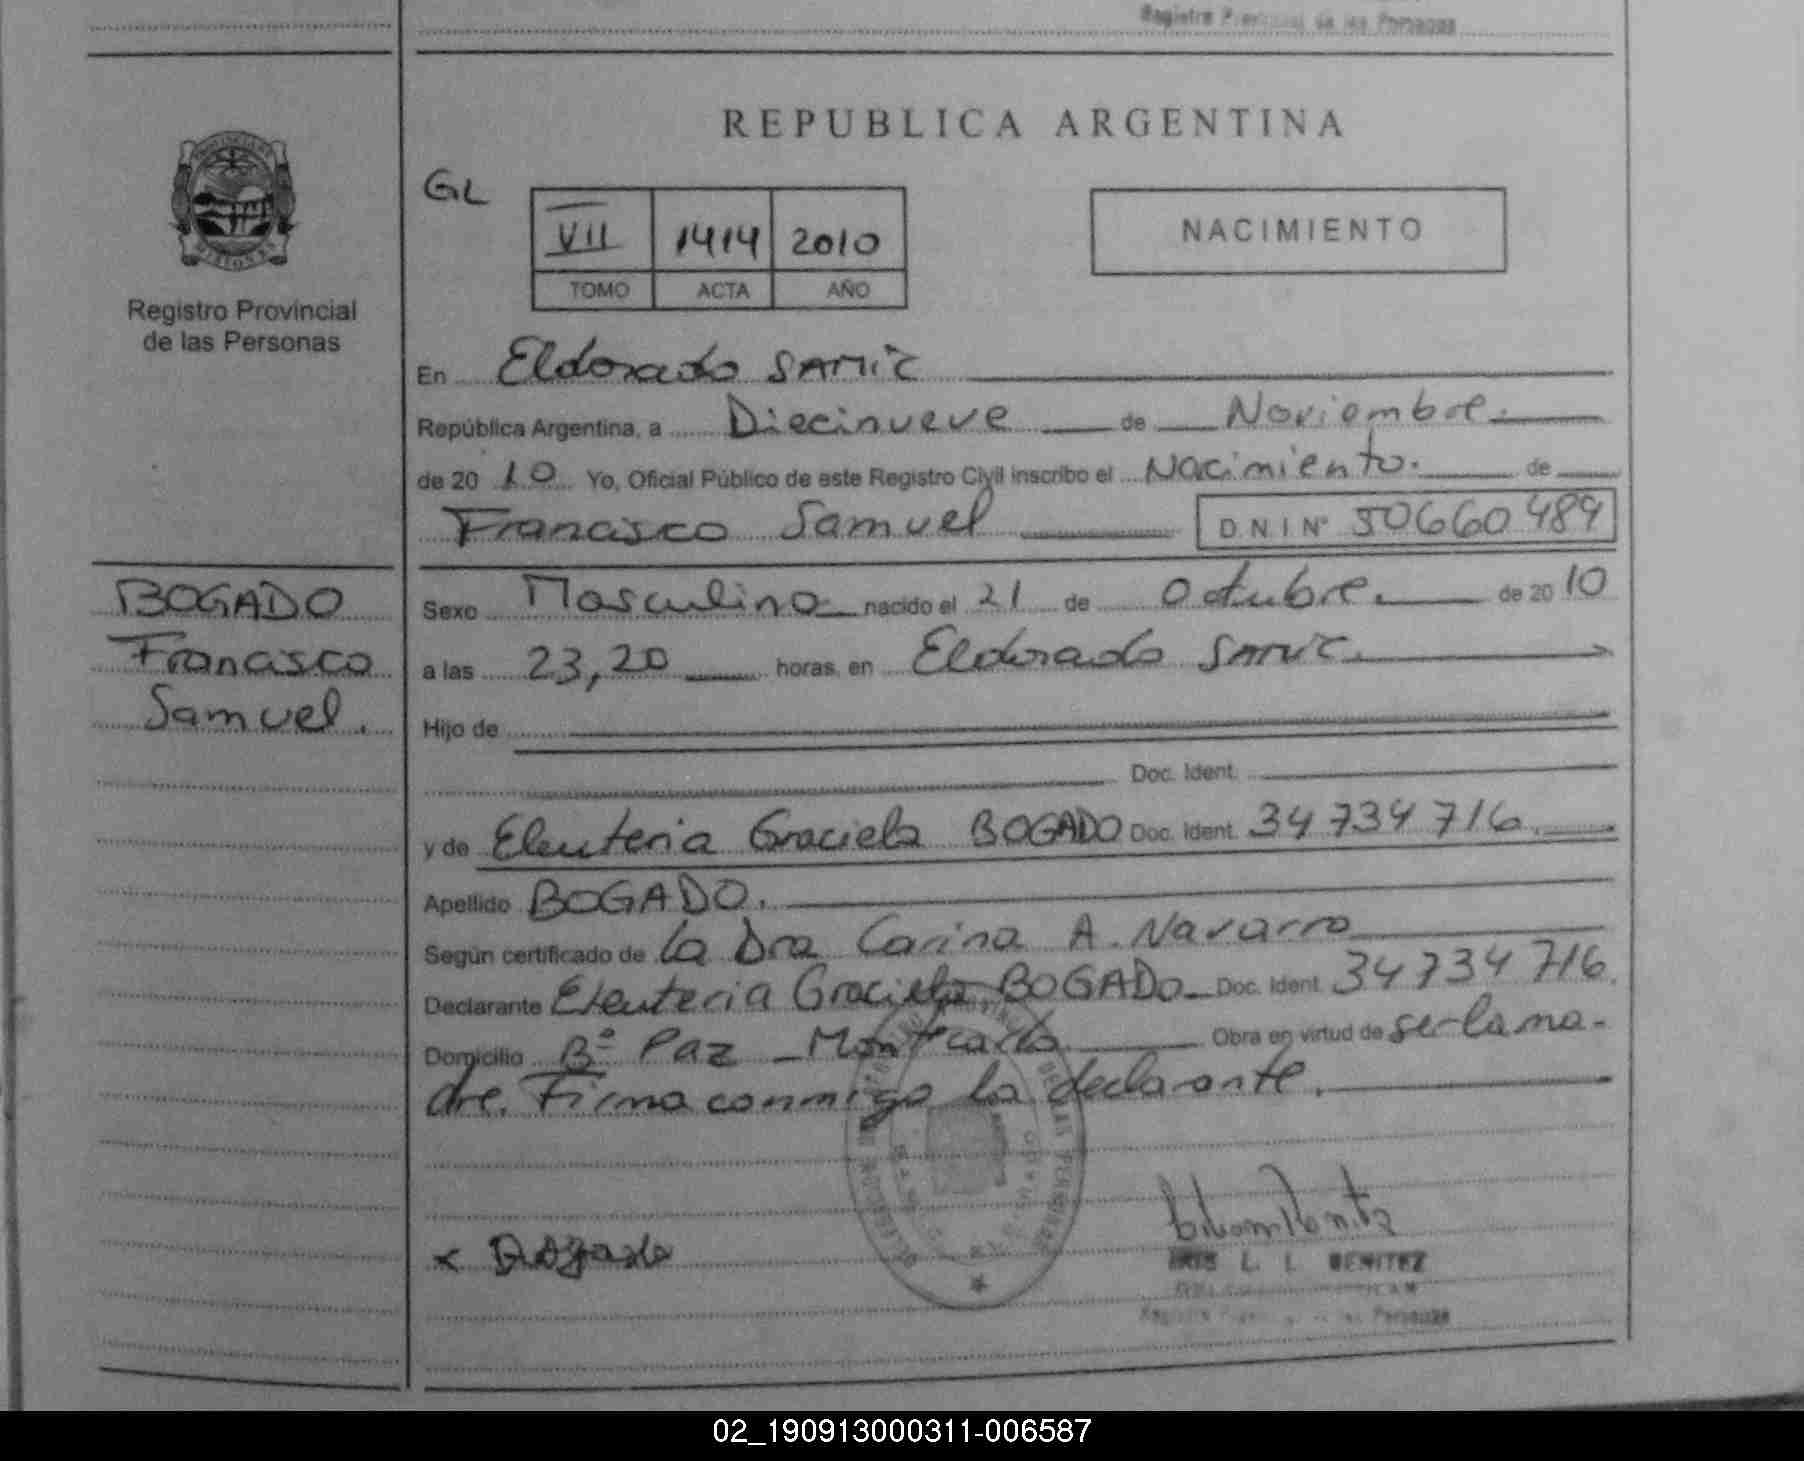 Registro Provincial de las Personas
REPUBLICA ARGENTINA
PROVINCIA DE
MISIONES
Registro Provincial
de las Personas
GL
VII 1414 2010
TOMO ACTA AÑO
NACIMIENTO
En Eldorado SAMIC
República Argentina, a Diecinueve de Noviembre.
de 2010 Yo, Oficial Público de este Registro Civil inscribo el Nacimiento. de
Francisco Samuel D.N.I Nº 50660489
BOGADO
Francisco
Samuel.
Sexo Masculino nacido el 21 de Octubre. de 2010
a las 23,20 horas, en Eldorado SAMIC.
Hijo de
Doc. Ident.
y de Eleuteria Graciela BOGADO Doc. Ident. 34734716.
Apellido BOGADO.
Según certificado de la Dra Carina A. Navarro
Declarante Eleuteria Graciela BOGADO Doc. Ident. 34734716.
Domicilio Bº Paz - Montecarlo Obra en virtud de ser la ma-
dre. Firma conmigo la declarante.
x Bogado
L. I. BENITEZ
Registro de las Personas
02_190913000311-006587